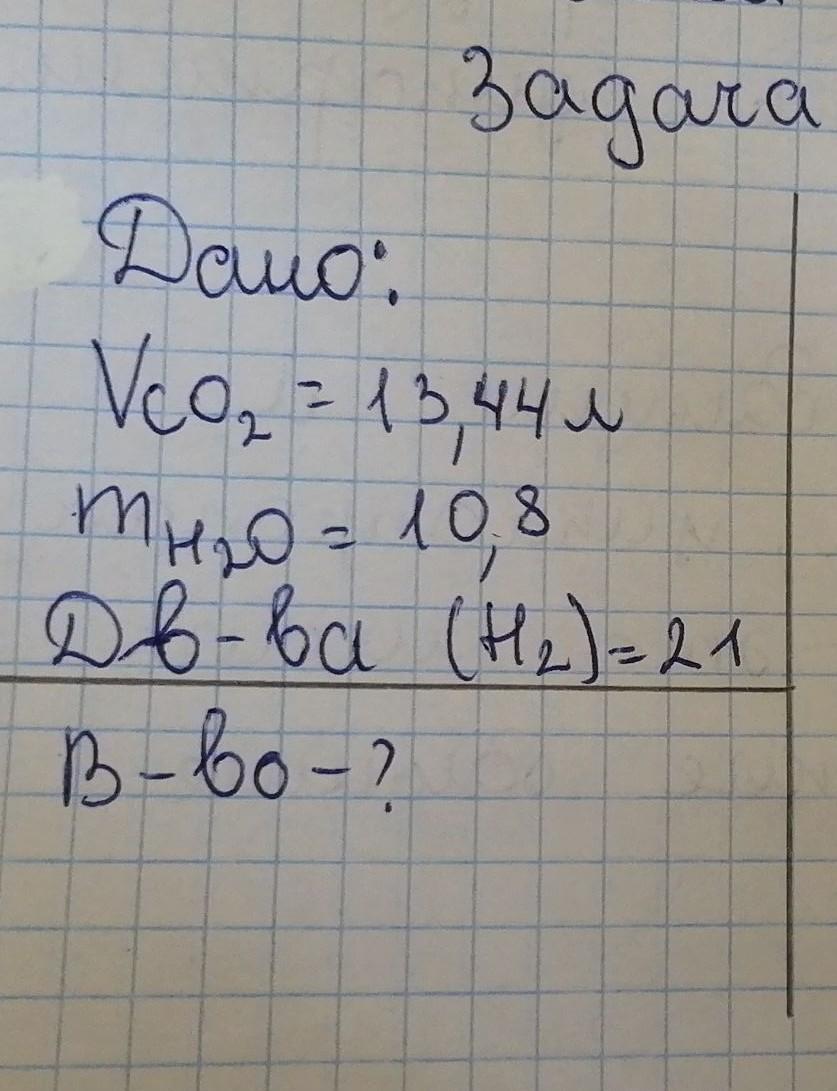 Задача
Дано:
VCO₂ = 13,44 л
mH₂O = 10,8
Дв-ва (H₂) = 21
В-во - ?